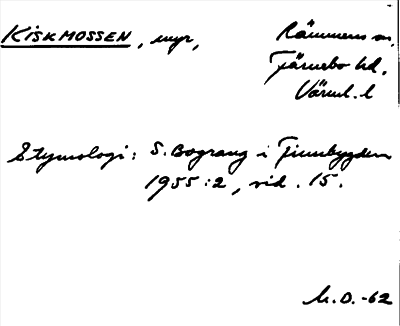 KISKMOSSEN, myr, Rämmens sn,
Färnebo hd.
Värml. l
Etymologi: S. Bograng i Finnbygden
1955:2, sid. 15.
M.D. -62